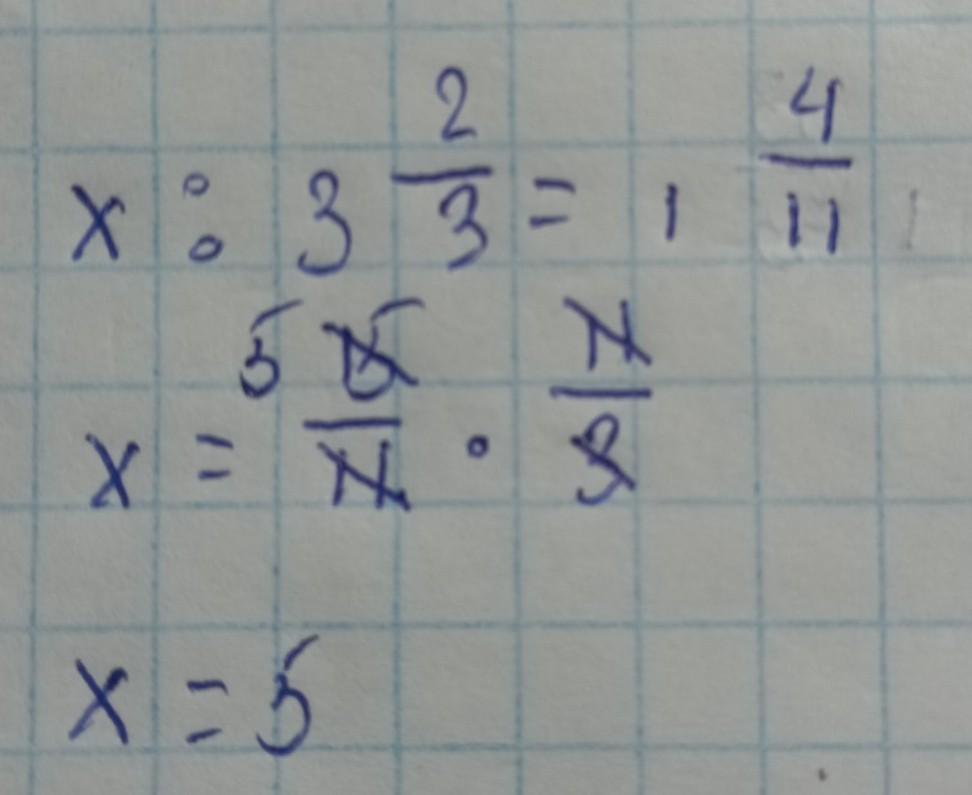 x : 3 2/3 = 1 4/11
x = 5 15/11 · 11/3
x = 5